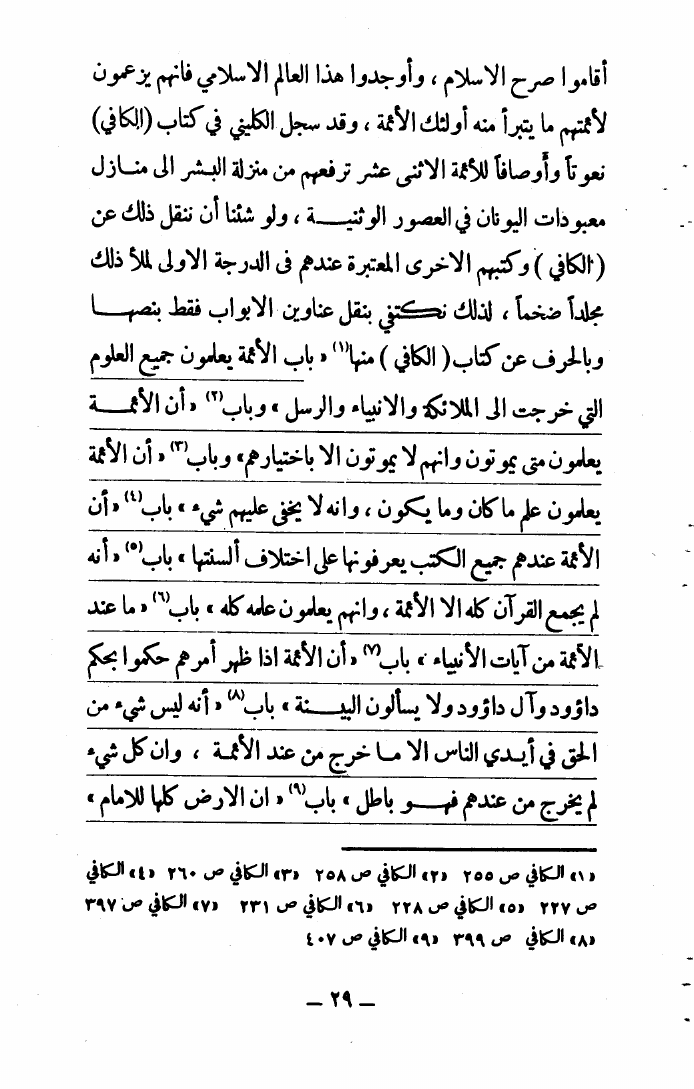 أقاموا صرح الاسلام ، وأوجدوا هذا العالم الاسلامي فانهم يزعمون
لأئمتهم ما يتبرأ منه أولئك الأئمة ، وقد سجل الكليني في كتاب (الكافي)
نعوتاً وأوصافاً للأئمة الاثنى عشر ترفعهم من منزلة البشر الى منـازل
معبودات اليونان في العصور الوثنيـــة ، ولو شئنا أن ننقل ذلك عن
( الكافي ) وكتبهم الاخرى المعتبرة عندهم فى الدرجة الاولى لملأ ذلك
مجلداً ضخماً ، لذلك نكـتفي بنقل عناوين الابواب فقط بنصهـــا
وبالحرف عن كتاب ( الكافي ) منها(١) « باب الأئمة يعلمون جميع العلوم
التي خرجت الى الملائكة والانبياء والرسل » وباب(٢) « أن الأئمــــة
يعلمون متى يموتون وانهم لا يموتون الا باختيارهم» وباب(٣) « أن الأئمة
يعلمون علم ما كان وما يكون ، وانه لا يخفى عليهم شيء » باب(٤) « أن
الأئمة عندهم جميع الكتب يعرفونها على اختلاف ألسنتها » باب(٥) « أنه
لم يجمع القرآن كله الا الأئمة ، وانهم يعلمون علمه كله » باب(٦) « ما عند
الأئمة من آيات الأنبياء » باب(٧) « أن الأئمة اذا ظهر أمرهم حكموا بحكم
داؤود وآل داؤود ولا يسألون البينـــة » باب(٨) « أنه ليس شيء من
الحق في أيـدي الناس الا مـا خرج من عند الأئمـة ، وان كل شيء
لم يخرج من عندهم فهـــو باطل » باب(٩) « ان الارض كلها للامام »
«١» الكافي ص ٢٥٥ «٢» الكافي ص ٢٥٨ «٣» الكافي ص ٢٦٠ «٤» الكافي
ص ٢٢٧ «٥» الكافي ص ٢٢٨ «٦» الكافي ص ٢٣١ «٧» الكافي ص ٣٩٧
«٨» الكافي ص ٣٩٩ «٩» الكافي ص ٤٠٧
— ٢٩ —